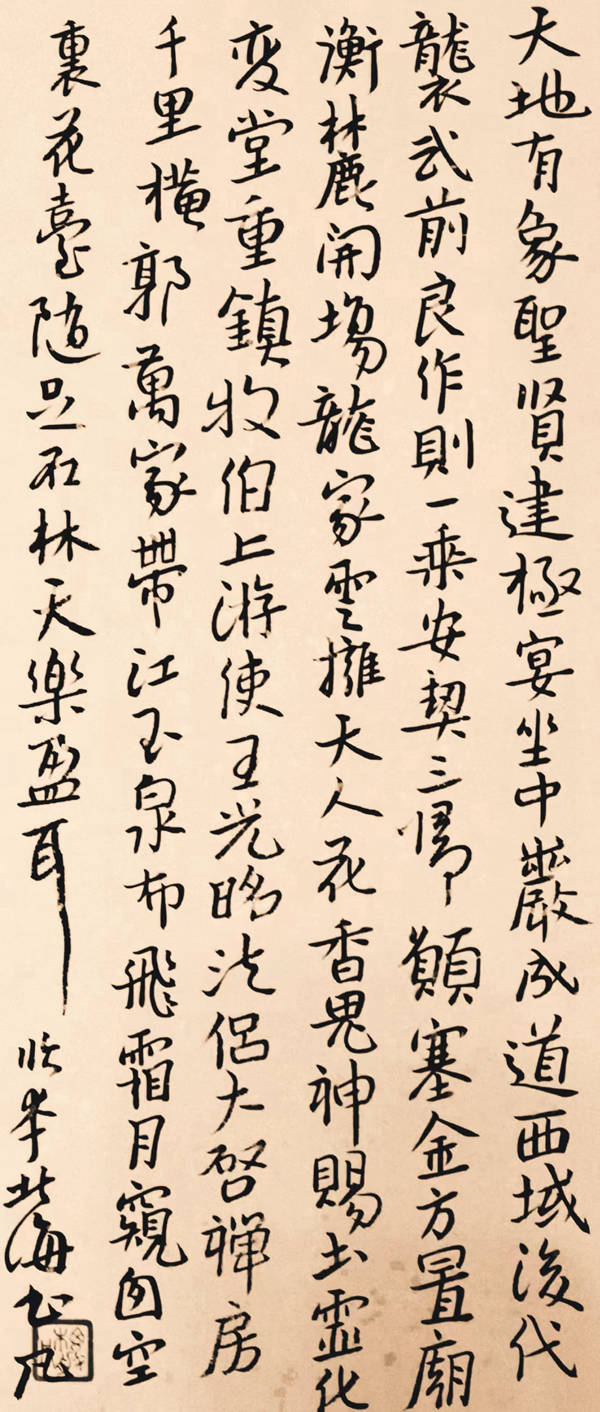 天地有象聖賢建極宴坐中巖成道西域後代
襲武前良作則一乘安契三歸願塞金方置廟
衡麓開場龍家雲擁天人花香鬼神賜土靈化
變堂重鎮牧伯上游使王光昭法侶大啓禪房
千里橫郭萬家帶江玉泉布飛霜月窺囱空
裏花臺隨足石林天樂盈耳
臨李北海書